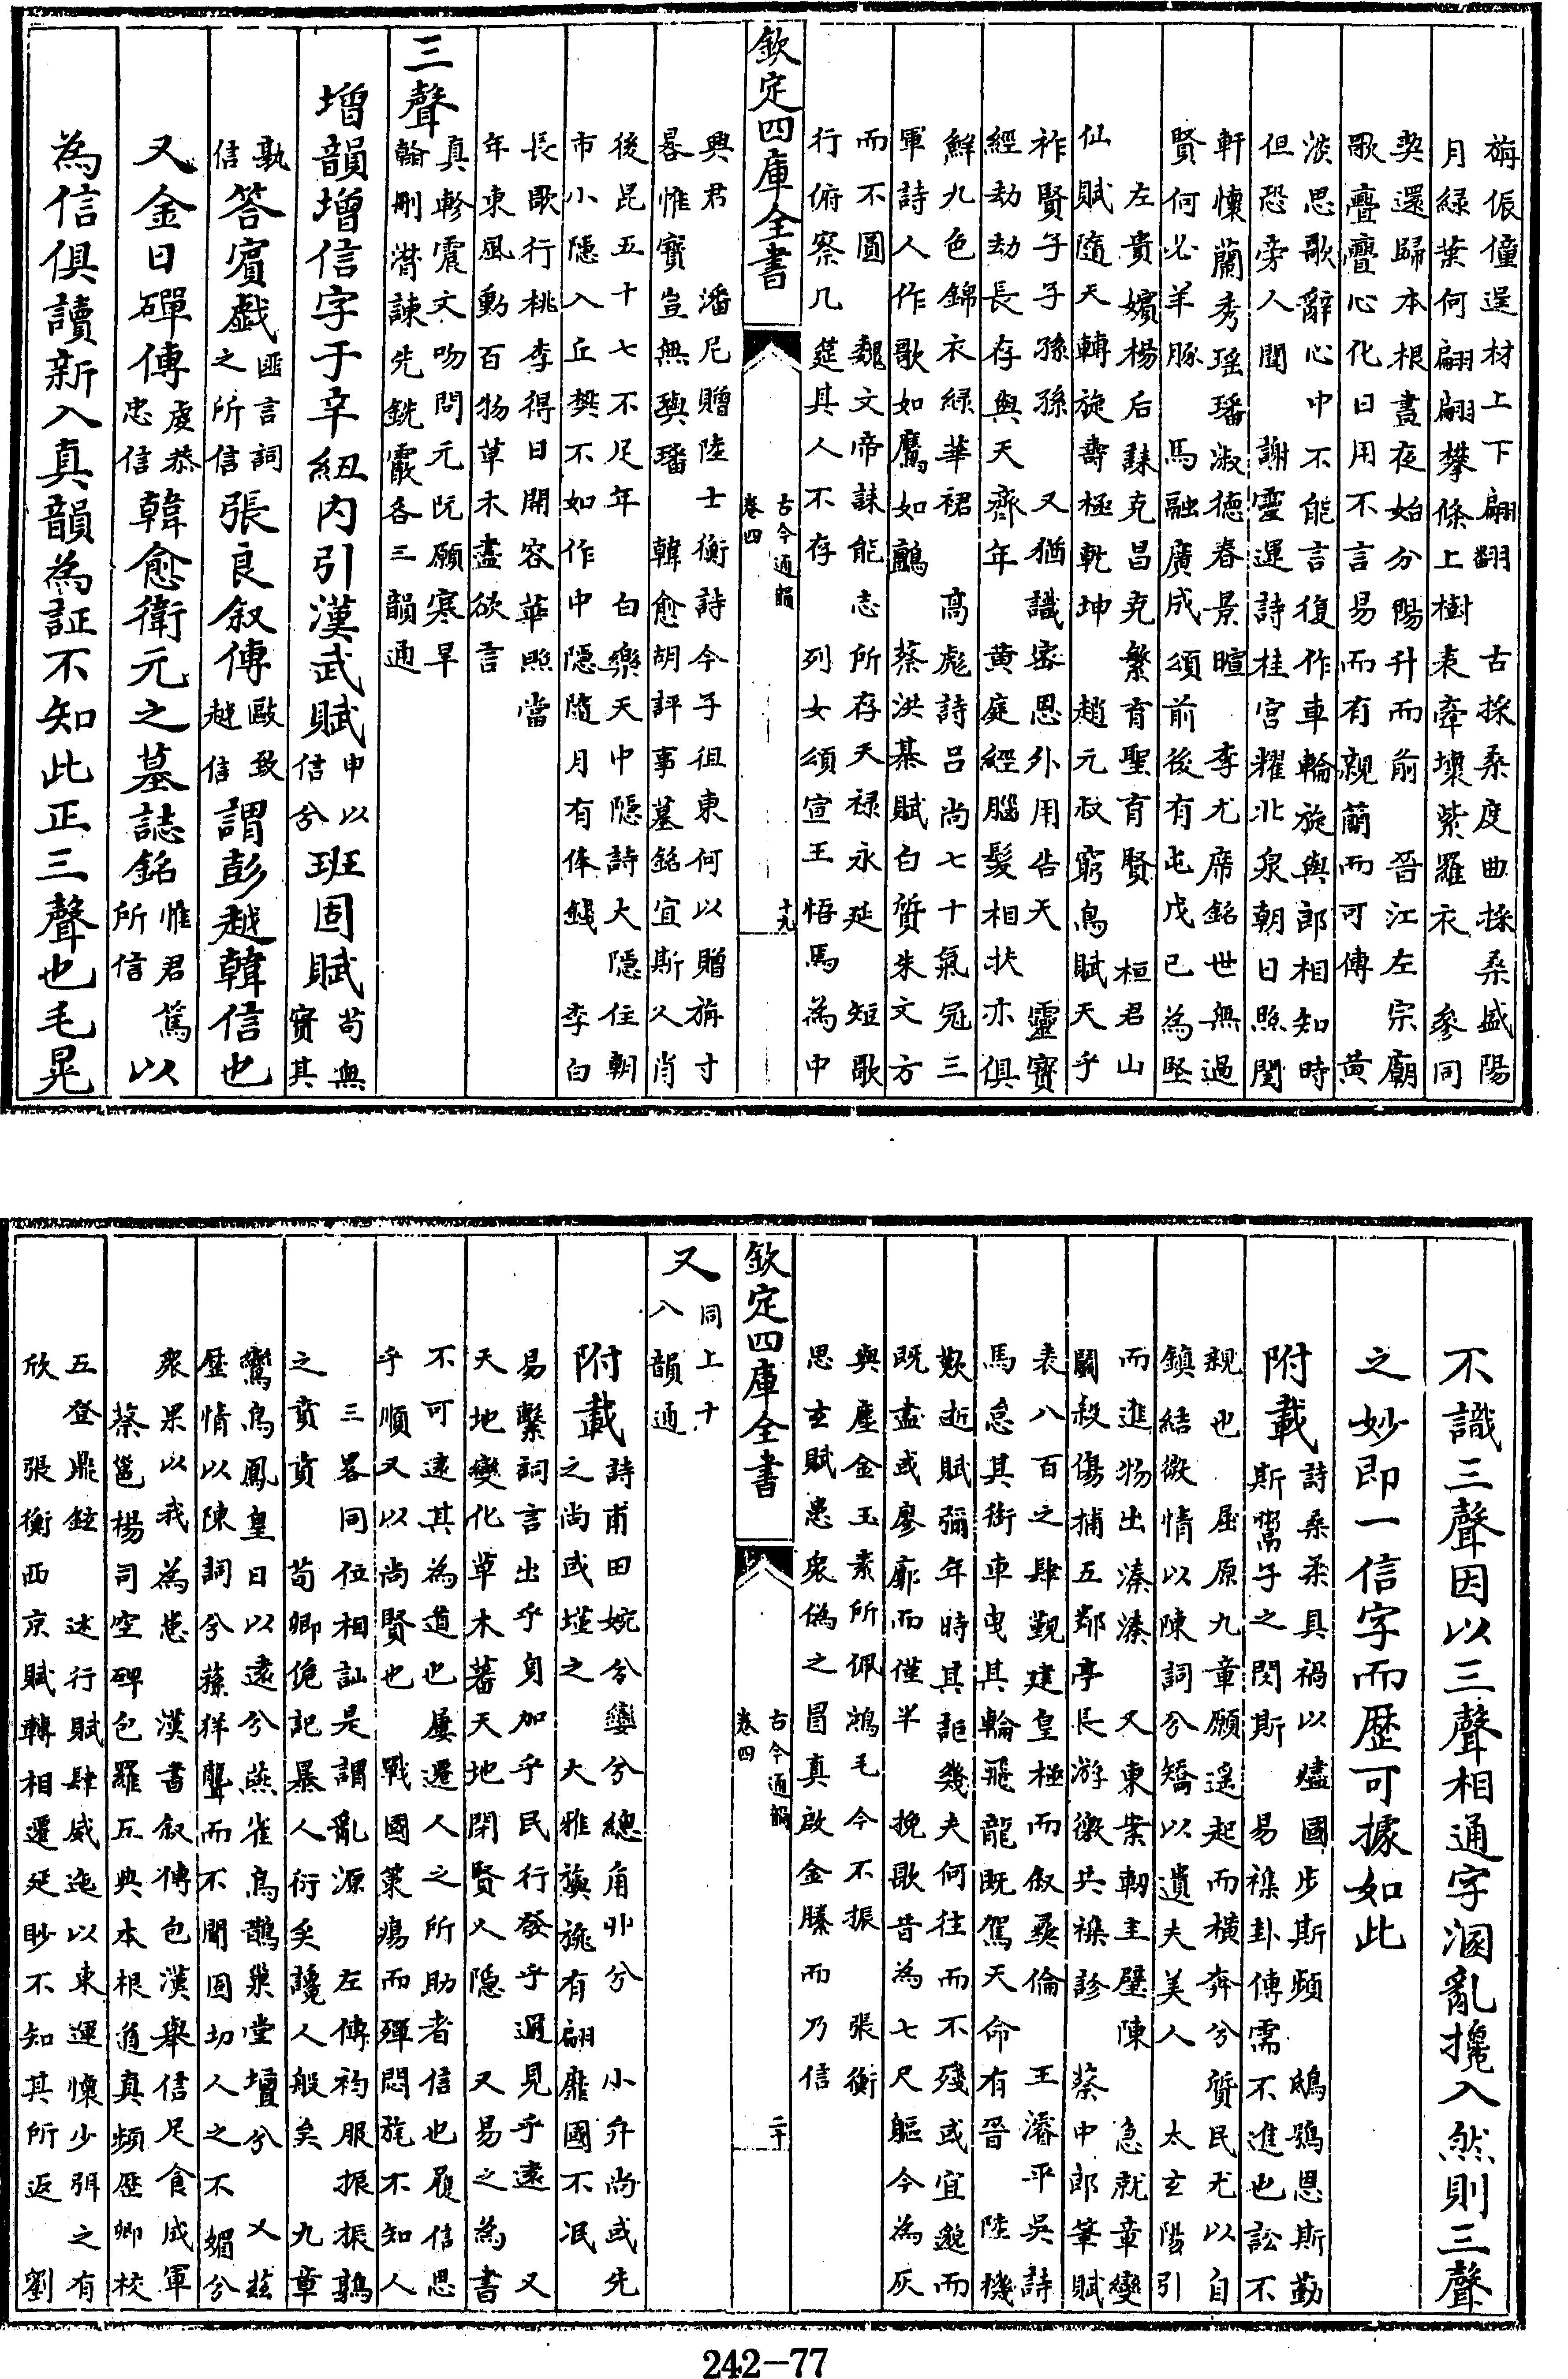 旃侲僮逞材上下翩翻　古採桑度曲採桑盛陽
月緑葉何翩翩攀條上樹表牽壞紫羅衣　參同
契還歸本根晝夜始分陽升而前　晉江左宗廟
歌亹亹心化日用不言易而有親簡而可傳　黄
淡思歌辭心中不能言復作車輪旋與郎相知時
但恐旁人聞　謝靈運詩桂宫耀北泉朝日照閨
軒懷蘭秀瑶璠淑德春景暄　李尤席銘世無過
賢何必羊豚　馬融廣成頌前後有屯戊已為堅
左貴嬪楊后誄克昌克繁育聖育賢　桓君山
仙賦隨天轉旋壽極乾坤　趙元叔窮鳥賦天乎
祚賢子子孫孫　又猶識密恩外用告天　靈寳
經劫劫長存與天齊年　黄庭經腦髮相扶亦俱
鮮九色錦衣緑華裙　高彪詩吕尚七十氣冠三
軍詩人作歌如鷹如鸇　蔡洪棊賦白質朱文方
而不圓　魏文帝誄能志所存天禄永延　短歌
行俯察几筵其人不存　列女頌宣王悟焉為中
欽定四庫全書　古今通韻　卷四　十九
興君　潘尼贈陸士衡詩今子徂東何以贈旃寸
晷惟寳豈無璵璠　韓愈胡評事墓銘宜斯人肖
後昆五十七不足年　白樂天中隱詩大隱住朝
市小隱入丘樊不如作中隱隱隨月有俸錢　李白
長歌行桃李得日開容華照當
年東風動百物草木盡欲言
三聲　真軫震文吻問元阮願寒旱
翰刪潸諫先銑霰各三韻通
增韻增信字于辛紐内引漢武賦申以信兮班固賦苟無實其
孰信答賓戲匪言詞之所信張良叙傳歐致越信謂彭越韓信也
又金日磾傳虔恭忠信韓愈衛元之墓誌銘惟君篤所信以
為信俱讀新入真韻為証不知此正三聲也毛晃
不識三聲因以三聲相通字溷亂攙入然則三聲
之妙即一信字而歷可據如此
附載　詩桑柔具禍以燼國步斯頻　鴟鴞恩斯勤
斯鬻子之閔斯　易襍卦傳需不進也訟不
親也　屈原九章願遥起而横奔兮覽民尤以自
鎮結微情以陳詞兮矯以遺夫美人　太玄階引
而進物出溱溱　又東桉軔主壁陳　急就章變
鬬殺傷捕五鄰亭長游徼共襍診　蔡中郎筆賦
表八百之肆覲建皇極而叙彝倫　王濬平吳詩
馬怠其銜車曳其輪飛龍既駕天命有晉　陸機
歎逝賦彌年時其詎幾夫何往而不殘或宜邈而
既盡或廖廓而僅半　挽歌昔為七尺軀今為灰
與塵金玉素所佩鴻毛今不振　張衡
思玄賦患衆偽之冒真啟金縢而乃信
欽定四庫全書　古今通韻　卷四　二十
又　同上十
八韻通
附載　詩甫田婉兮孌兮總角丱兮　小弁尚或先
之尚或墐之　大雅旟旐有翩靡國不泯
易繫詞言出乎身加乎民行發乎邇見乎遠　又
天地變化草木蕃天地閉賢人隱　又易之為書
不可遠其為道也屢遷人之所助者信也履信思
乎順又以尚賢也　戰國策瘍而殫悶旄不知人
三畧同位相訕是謂亂源　左傳袀服振振鶉
之賁賁　荀卿佹記暴人衍矣讒人般矣　九章
鸞鳥鳳皇日以遠兮燕雀烏鵲巢堂壇兮　又兹
歷情以陳詞兮蓀詳聾而不聞固切人之不媚兮
衆果以我為患　漢書叙傳包漢舉信足食成軍
蔡邕楊司空碑包羅五典本根道真頻歷卿校
五登鼎鉉　述行賦肆威迤以東運懷少弭之有
欣　張衡西京賦轉相遷延眇不知其所返　劉
242-77